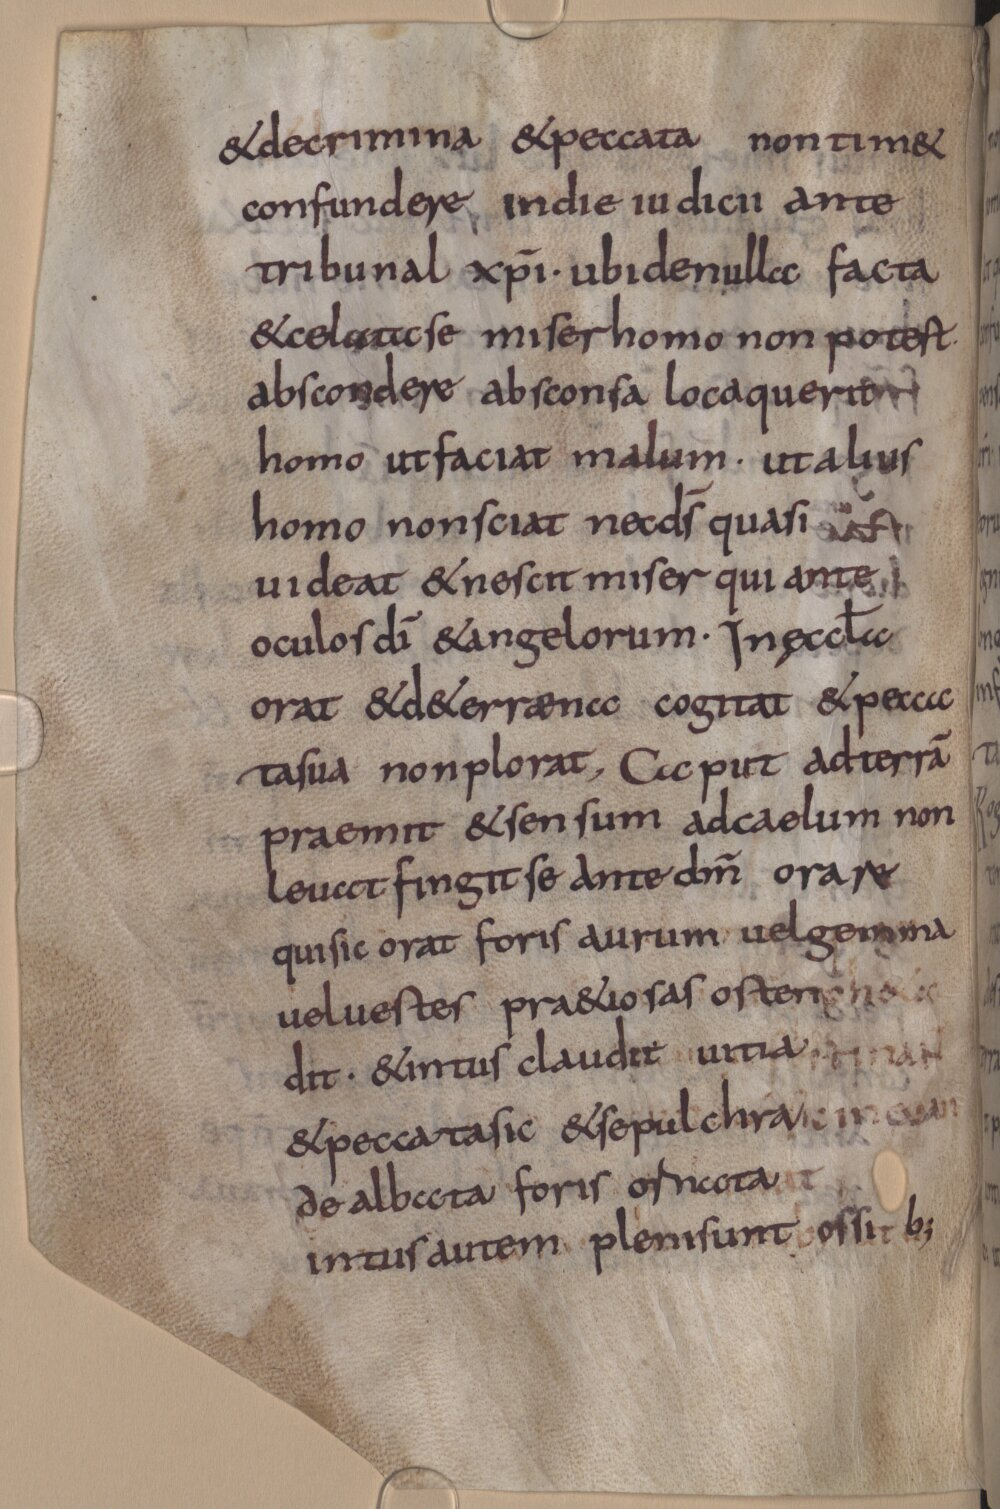 &decrimina &peccata nontim&
confundere indie iudicii ante
tribunal xp̄i · ubidenulla facta
&celatase miser homo non potest·
abscondere absconsa locaquerit
homo utfaciat malum · ut alius
homo nonsciat necds̄ quasi
uideat &nescit miser qui ante
oculos dī &angelorum · Inęccl̄a
orat &d&erraena cogitat &pecca
tasua nonplorat, Caput adterrā
praemit &sensum adcaelum non
leuat fingit se ante dm̄ orare
quisic orat foris aurum uelgemma
ueluestes pra&iosas osten
dit · &intus claudit uitia
&peccatasic &sepulchra
dealbata foris ornata
intusautem plenisunt ossib;